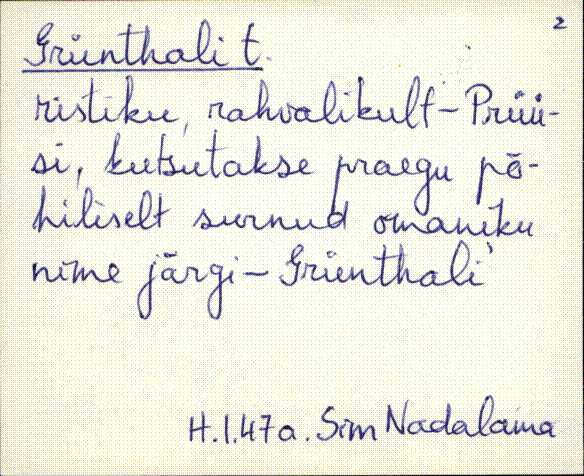 2
Grünthali t.
ristiku, rahvalikult - Prüü-
si, kutsutakse praegu põ-
hiliselt surnud omaniku
nime järgi - Grünthali
H.I.47a. Sim Nadalama